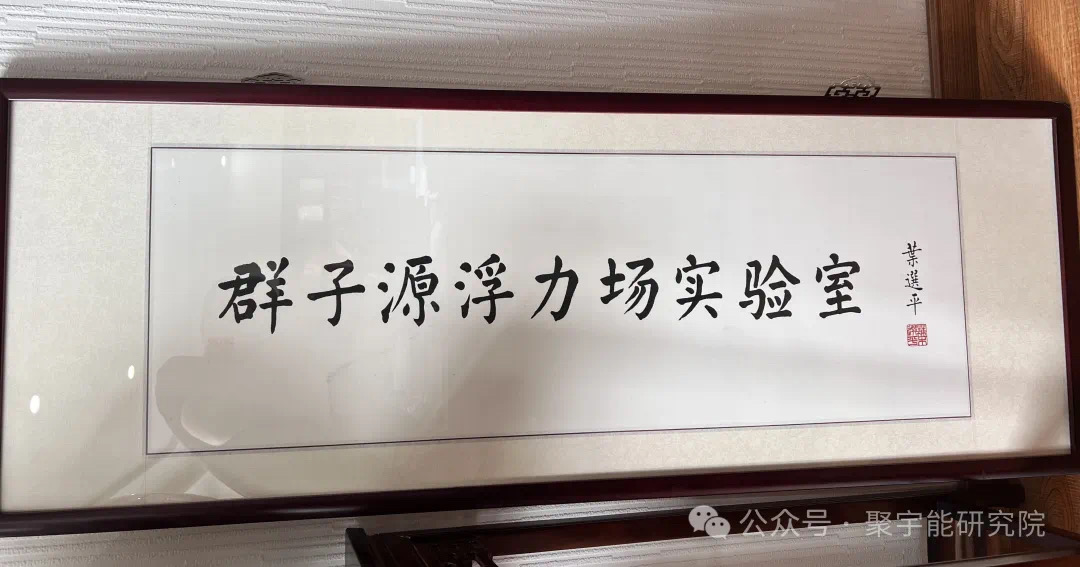 群子源浮力场实验室
葉選平
公众号·聚宇能研究院